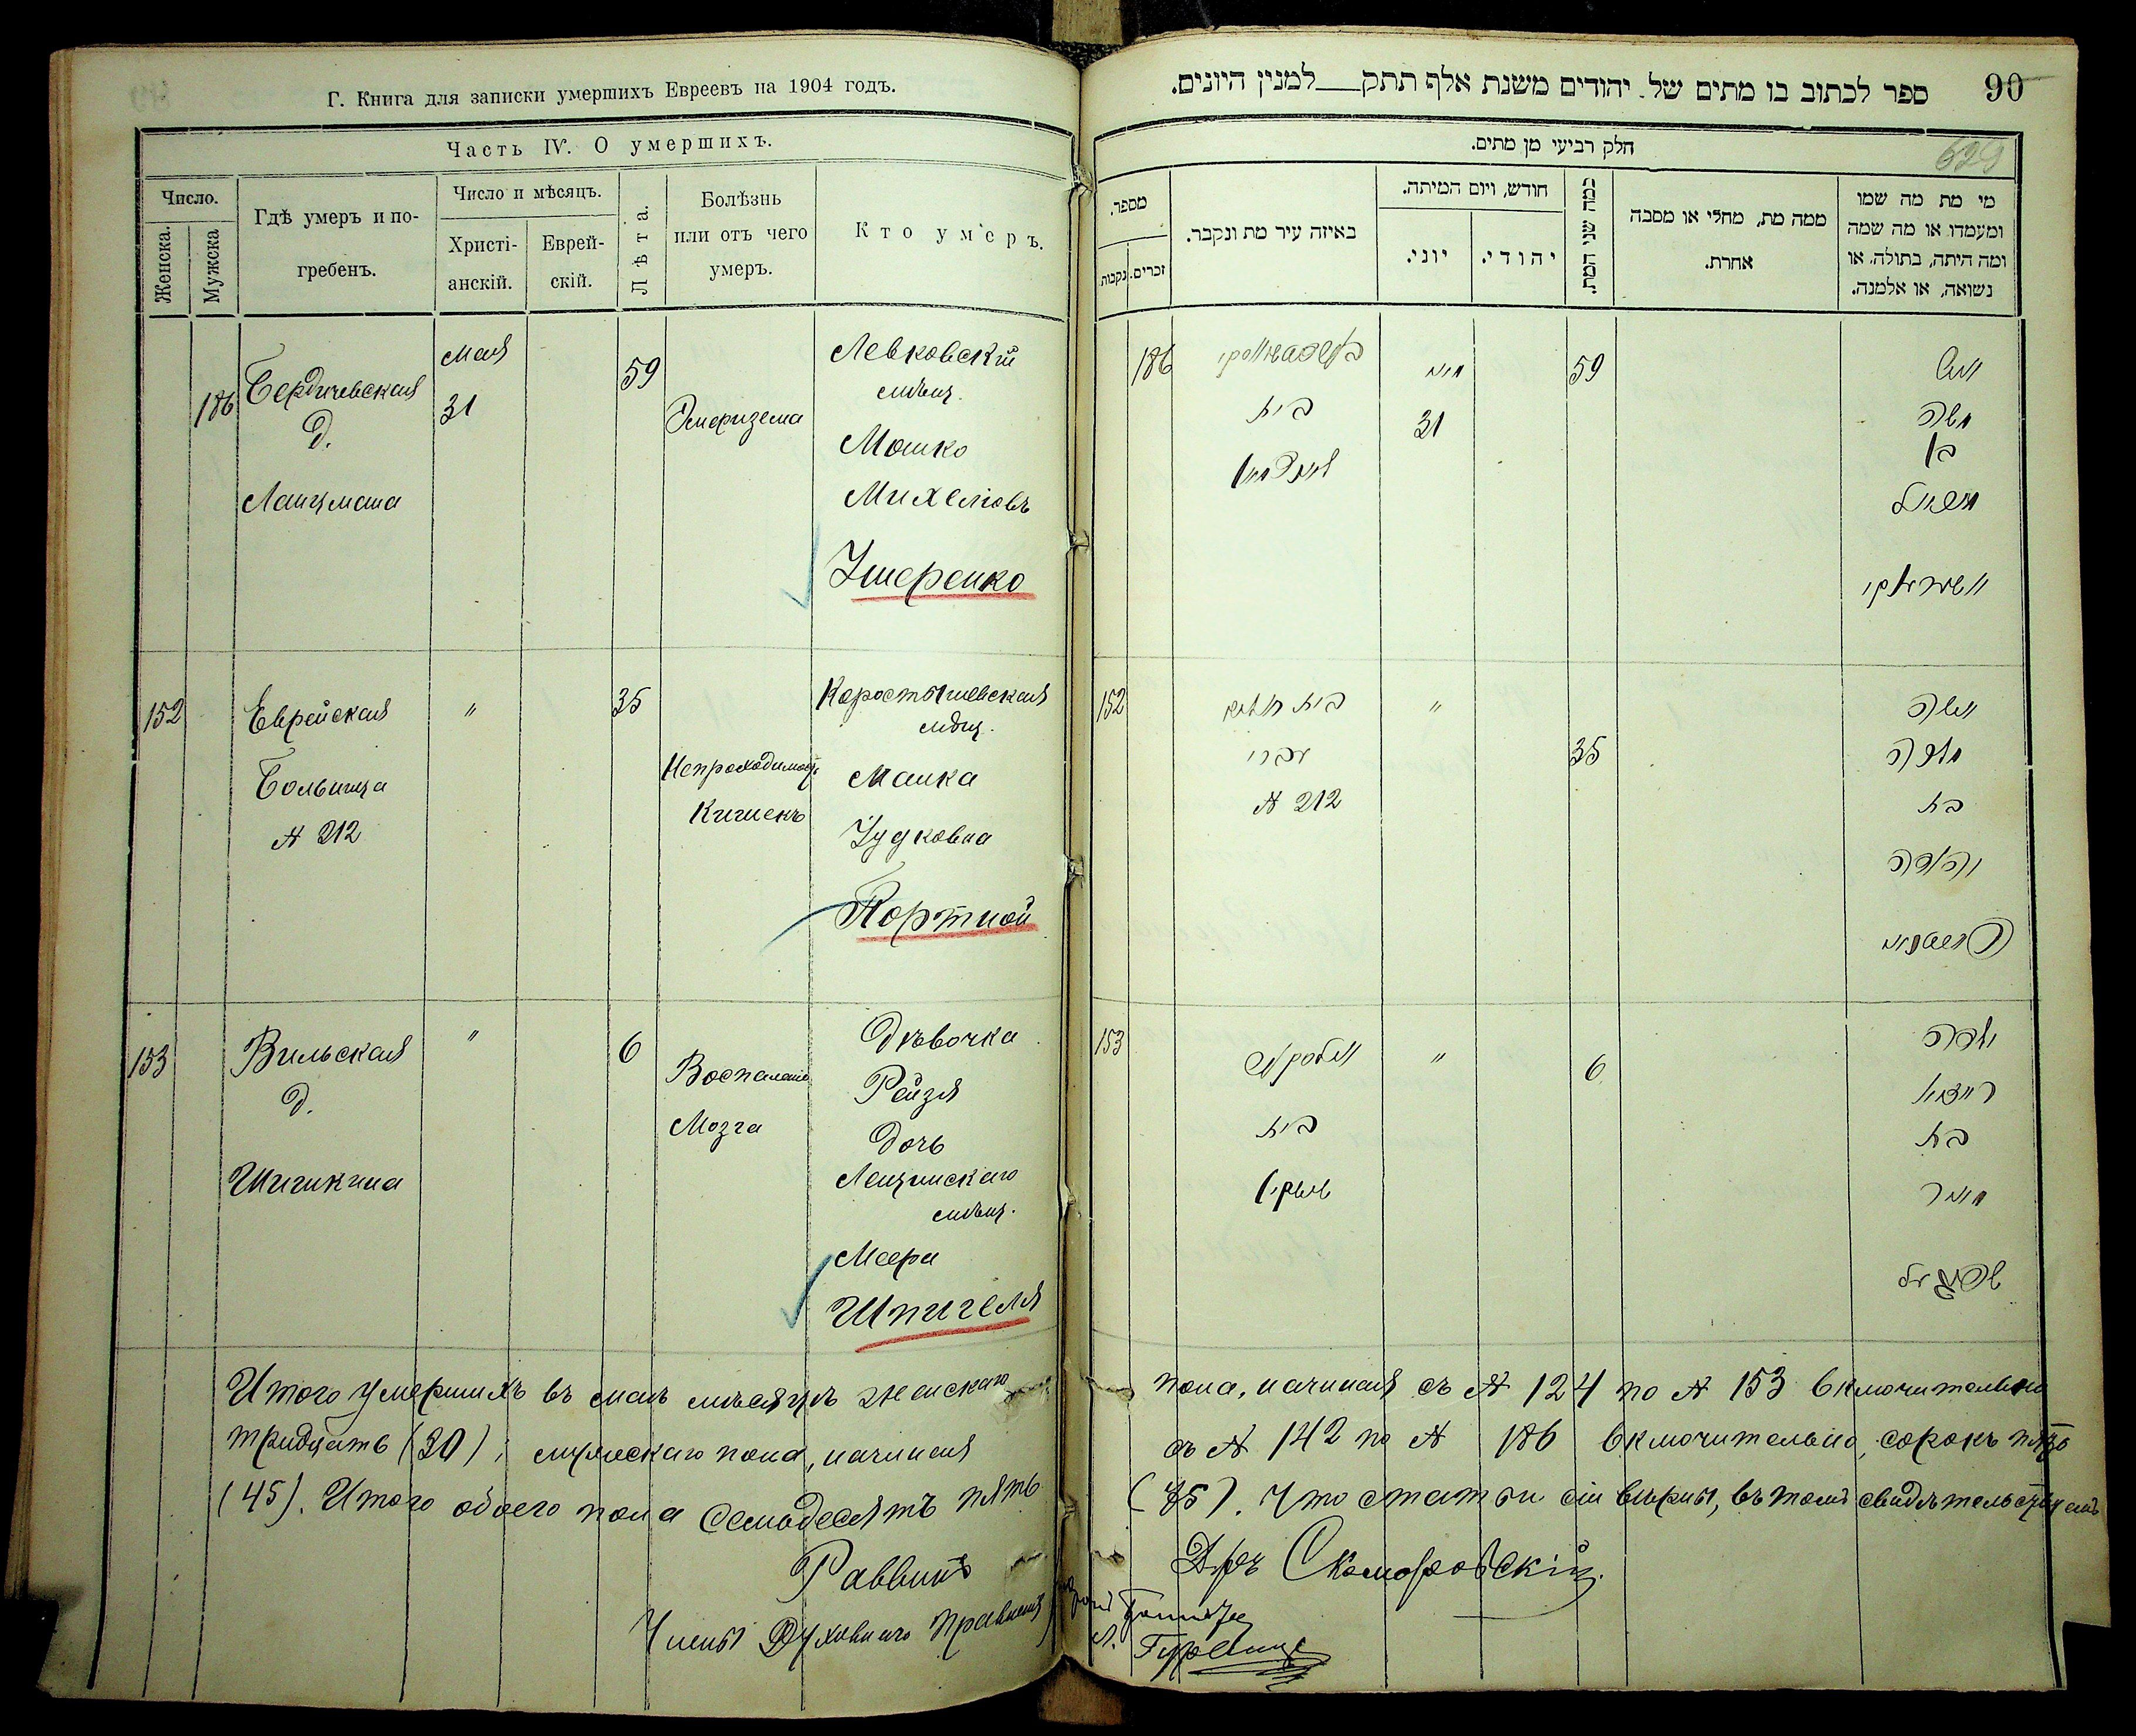 Г. Книга для записки умершихъ Евреевъ на 1904 годъ.
Часть IV. О умершихъ.
Число.
Женска.
Мужска
Гдѣ умеръ и по-
гребенъ.
Число и мѣсяцъ.
Христі-
анскій.
Еврей-
скій.
Лѣта.
Болѣзнь
или отъ чего
умеръ.
Кто умеръ.
186
Бердичевская
д.
Ланцмана
Мая
31
59
Эмфизема
Левковскій
мѣщ.
Мошко
Михелювъ
Ушеренко
152
Еврейская
Больница
№ 212
"
35
Непроходимость
Кишекъ
Коростышевская
мѣщ.
Манка
Чудковна
Портной
153
Вильская
д.
Шишкина
"
6
Воспаленіе
Мозга
Дѣвочка
Рейзя
дочь
мѣщ.
Меера
Шпигеля
Итого умершихъ въ маѣ мѣсяцѣ женскаго
тридцать (30); мужескаго пола, начиная
(45). Итого обоего пола Семьдесятъ пять
Раввинъ
Члены Духовнаго Правленія
90
ספר לכתוב בו מתים של יהודים משנת אלף תתק___למנין היונים.
629
חלק רביעי מן מתים.
מספר.
זכרים.
נקבות
באיזה עיר מת ונקבר.
חודש, ויום המיתה.
יוני.
יהודי.
כמה שני המת.
ממה מת, מחלי או מסבה
אחרת.
מי מת מה שמו
ומעמדו או מה שמה
ומה היתה, בתולה, או
נשואה, או אלמנה.
186
בית
מאי
31
59
איש
משה
בן
מיכאל
152
בית
№ 212
"
35
אשה
מלכה
בת
153
בית
שישקין
"
6
ילדה
רייזיא
בת
מאיר
שפיגעל
пола, начиная съ № 124 по № 153 включительно
съ № 142 по № 186 включительно, сорокъ пять
(75). Что статьи сіи вѣрны, въ томъ свидѣтельствуемъ
Д-ръ Скоморовскій.
Гурвицъ